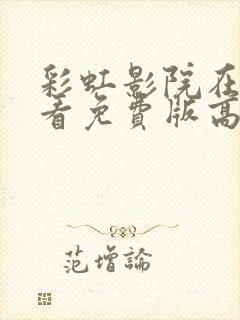 彩虹影院在
看免費版高
范增論